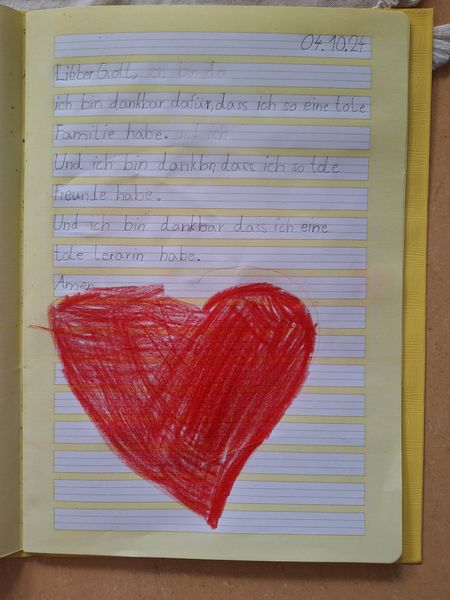 04.10.24
Libber Gott,
ich bin dankbar dafür, dass ich so eine tole
Familie habe.
Und ich bin dankbr, dass ich so tole
Freunde habe.
Und ich bin dankbar dass ich eine
tole lerarin habe.
Amen